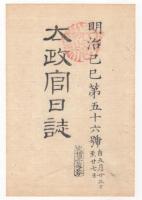 明治己巳第五十六號
自五月廿三日
至廿七日
太政官日誌